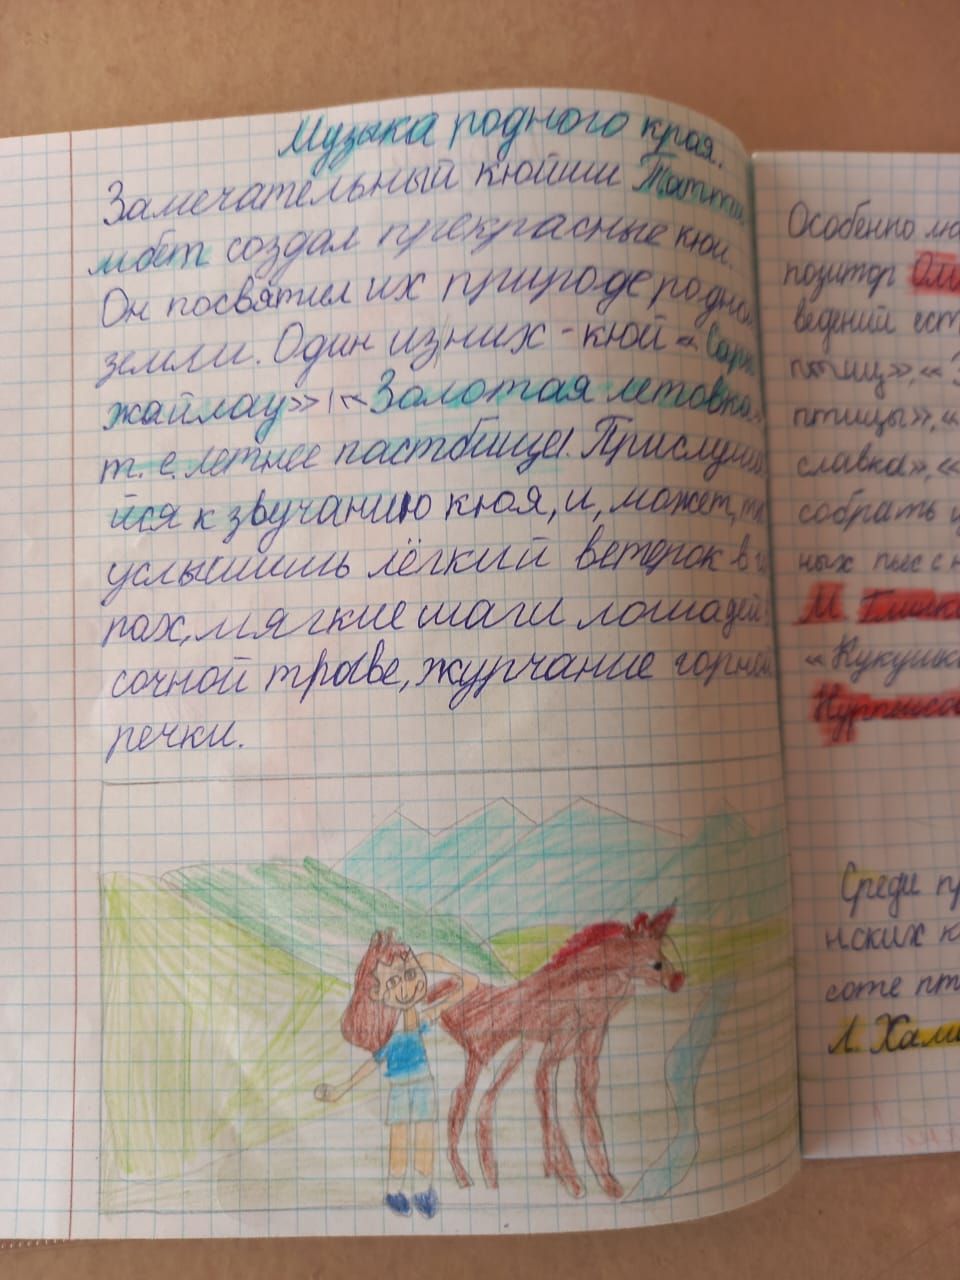 Музыка родного края.
Замечательный кюйши Татти
мбет создал прекрасные кюи.
Он посвятил их природе родно
земли. Один из них - кюй «Сары
жайлау» («Золотая летовка»,
т. е. летнее пастбище). Прислушай
йся к звучанию кюя, и, может, ты
услышишь лёгкий ветерок в
рах, мягкие шаги лошадей
сочной траве, журчание горной
речки.
Особенно
позитор
ведений
птиц», «
птицы», «
славка», «
собрать
ных пьес
М. Глинка
«Кукушка
Нурпеисова
Среди
нских
соте
Л. Хами